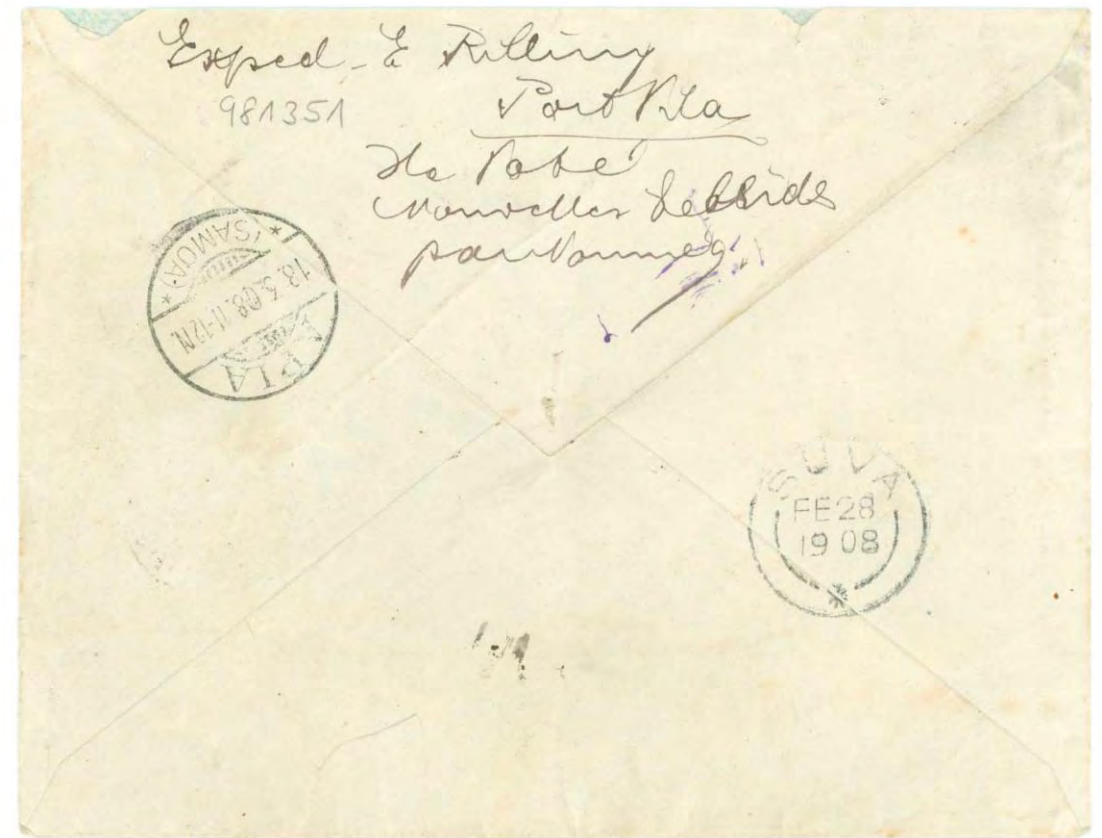 Exped - E Rilling
981351
Port Vila
Ile Vaté
Nouvelles Hebrides
par Noumea
APIA
(SAMOA)
18.3.08.11-12N.
SUVA
FE 28
19 08